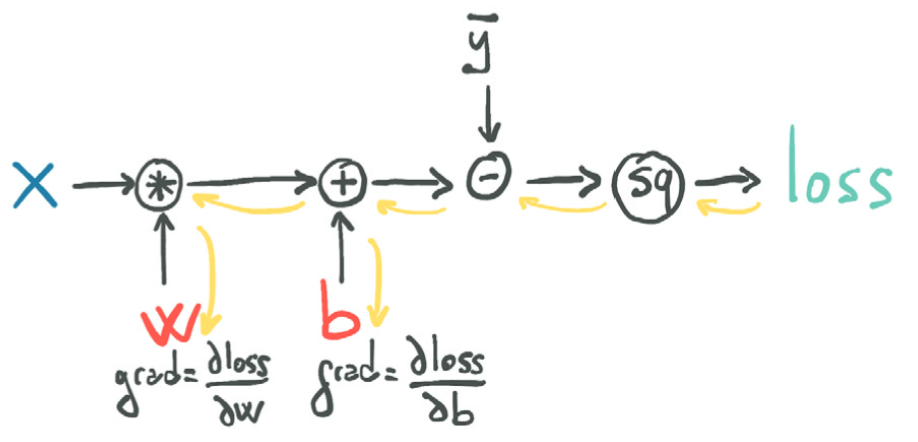 ȳ
x * + - sq loss
w b
grad = ∂loss/∂w grad = ∂loss/∂b